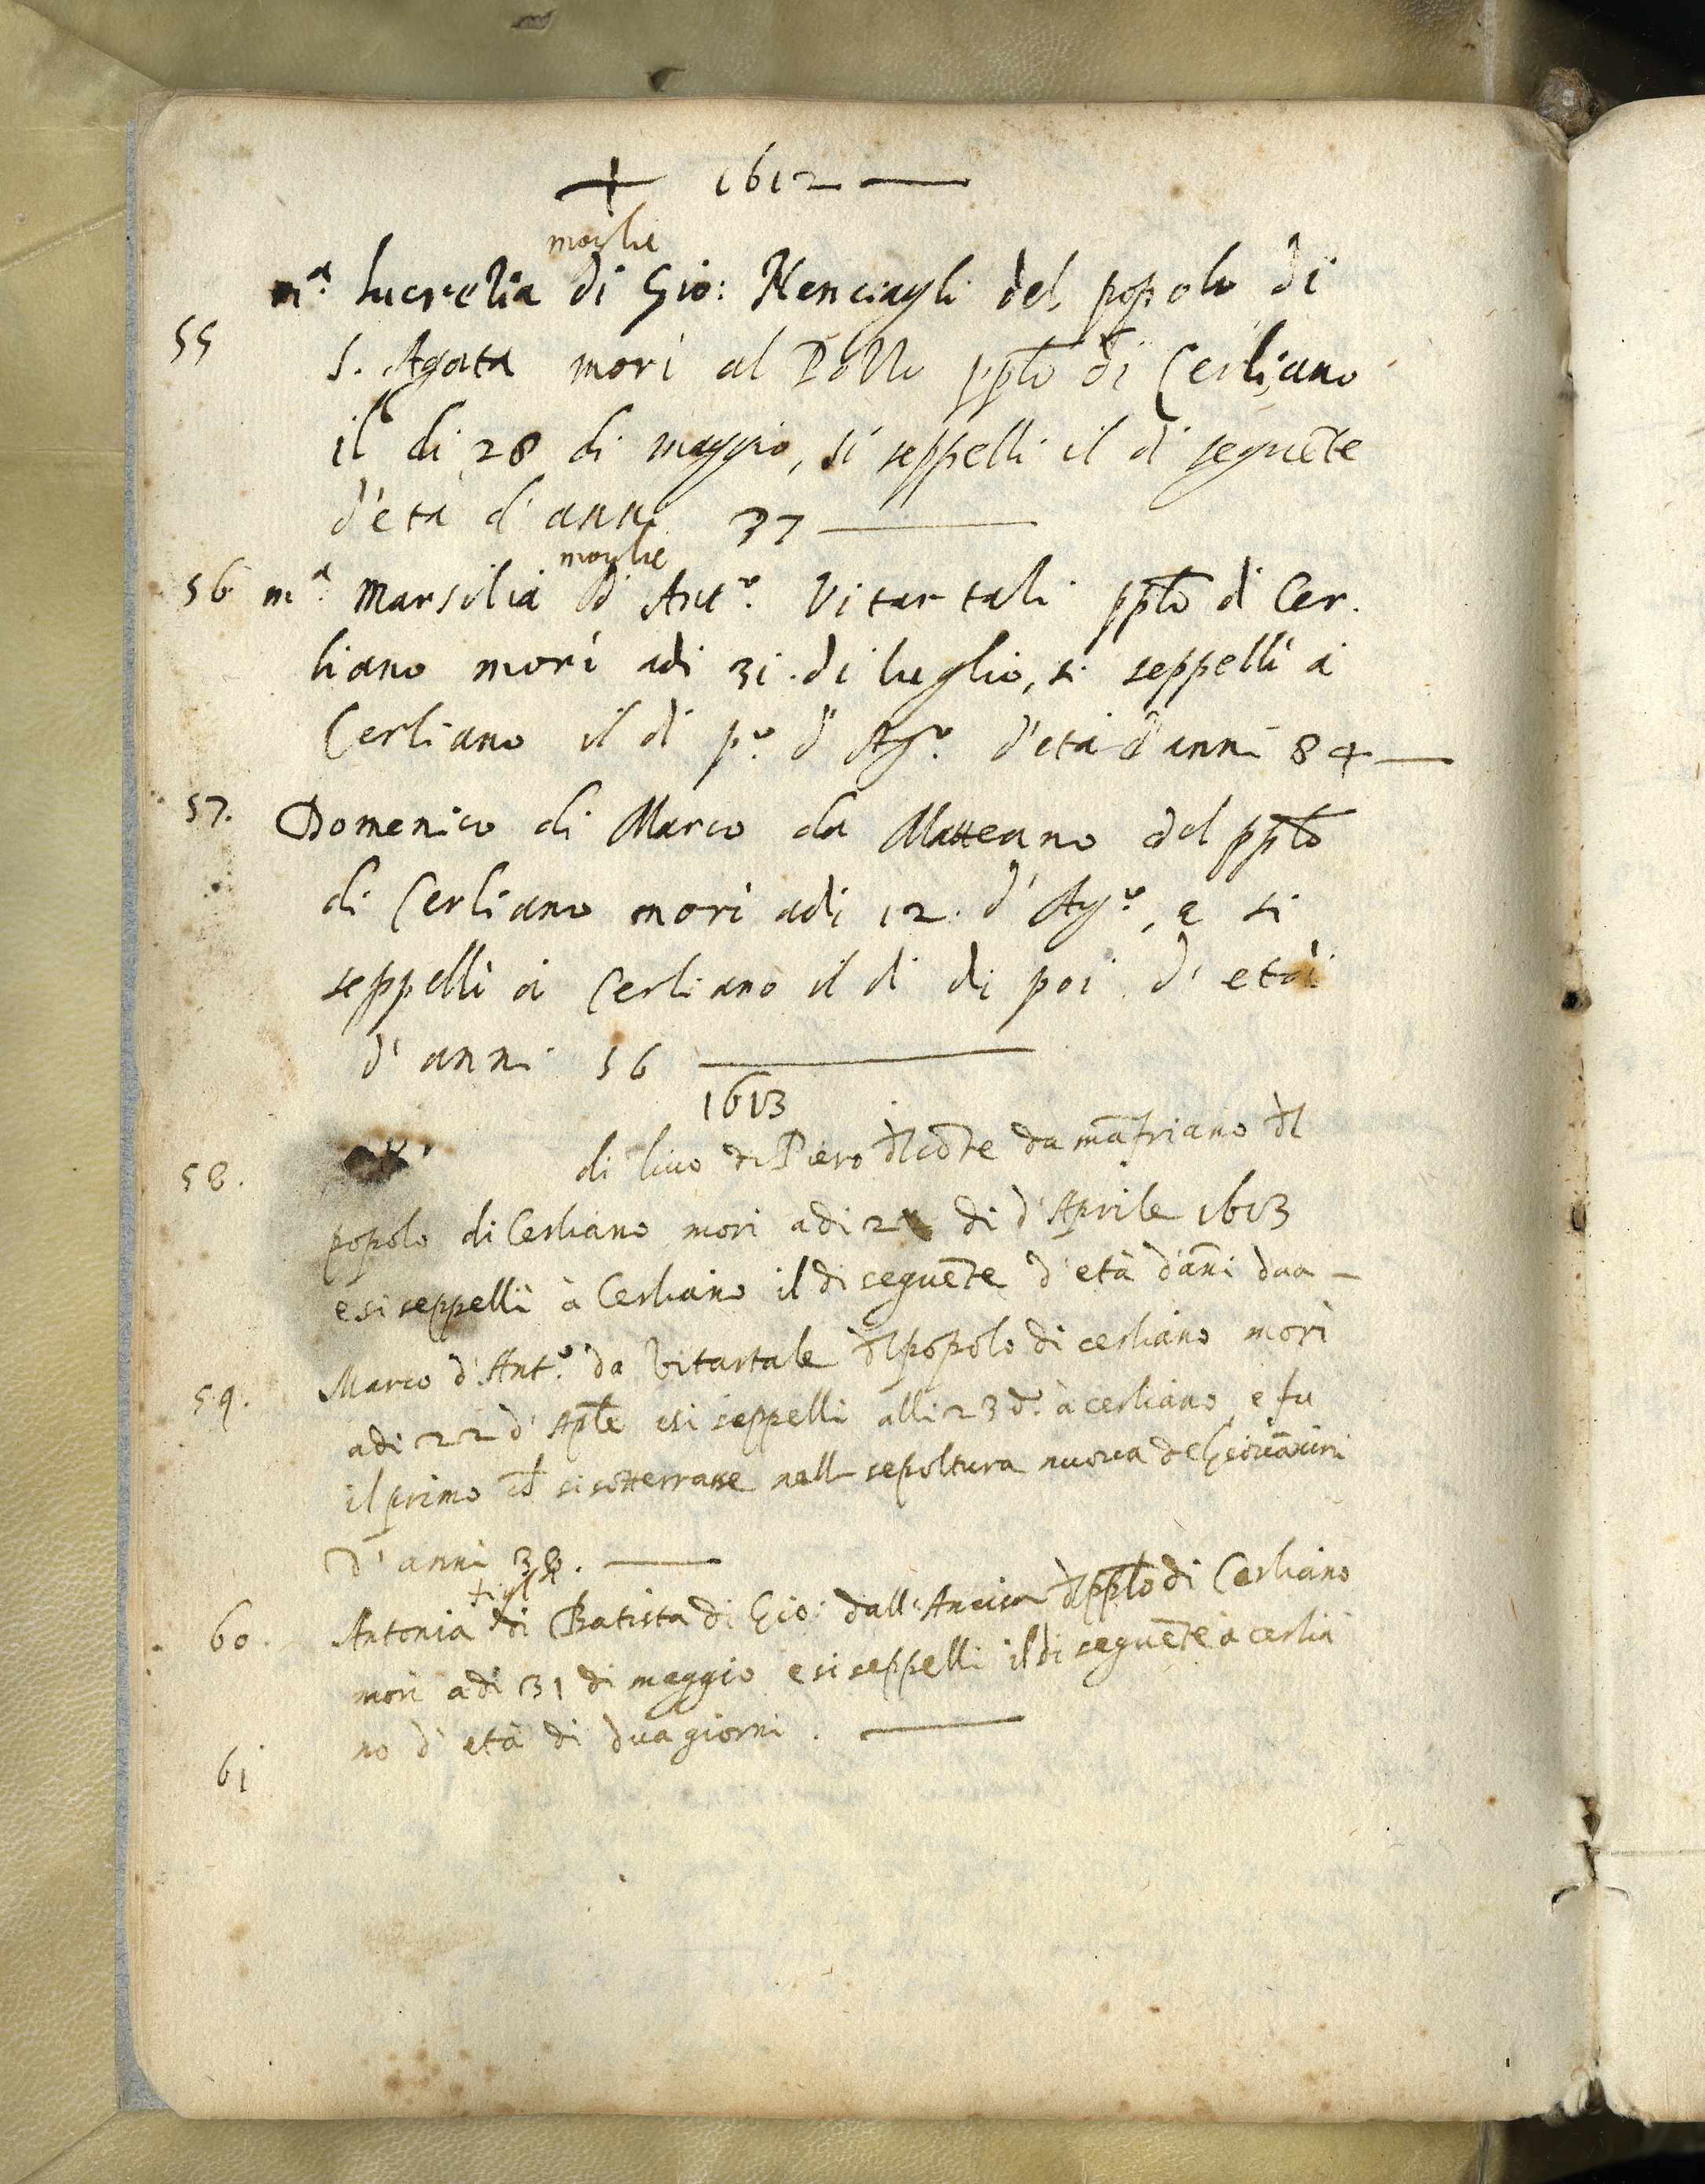 + 1612
moglie
m.ª Lucretia di Gio: Nenciagli del popolo di
55 S. Agata morì al Pollo pp̄lo di Cerliano
il di 28 di maggio, si seppelli il dì seguēte
d'età d'anni 37
moglie
56 m.ª Marsilia d' Ant.º Vitartali pp̄lo di Cer.
liano morì adi 31. di luglio, si seppellì à
Cerliano il di p.º d' Ag.º d'età d'anni 84
57. Domenico di Marco da Matteano del pp̄lo
di Cerliano morì adi 12. d' Ag.º, e si
seppellì à Cerliano il di di poi d' età
d' anni 56
1613
58. di luio di Piero dl cōte da māfriano dl
popolo di Cerliano morì adi 2 di d'Aprile 1613
e si seppellì à Cerliano il di seguēte d'età d'āni dua
59. Marco d'Ant.º da Vitartale dl popolo di cerliano morì
adi 22 d' Apl̄e e si seppelli alli 23 d.º à cerliano e fu
il primo ch si sotterrasse nell sepoltura nuova de
d' anni 38.
figl.
60. Antonia di Batista di Gio: dall'Ancisa dl pp̄lo di Cerliano
morì adi 31 di maggio e si seppelli il di seguēte à cerlia
no d' età di dua giorni.
61